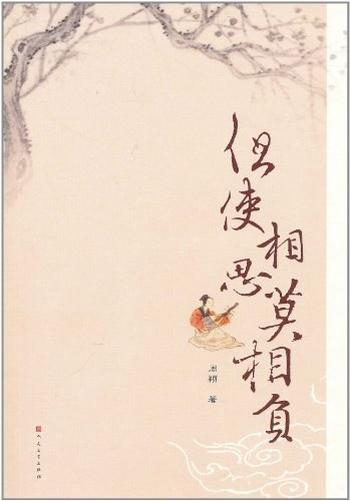 但使相思莫相负
周颖 著
人民文学出版社